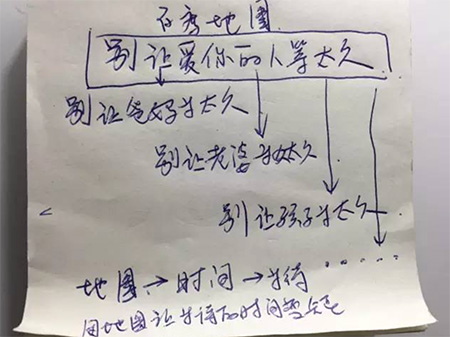 百度地图
别让爱你的人等太久
别让爸妈等太久
别让老婆等太久
别让孩子等太久
......
地图→时间→等待
用地图让等待的时间变短